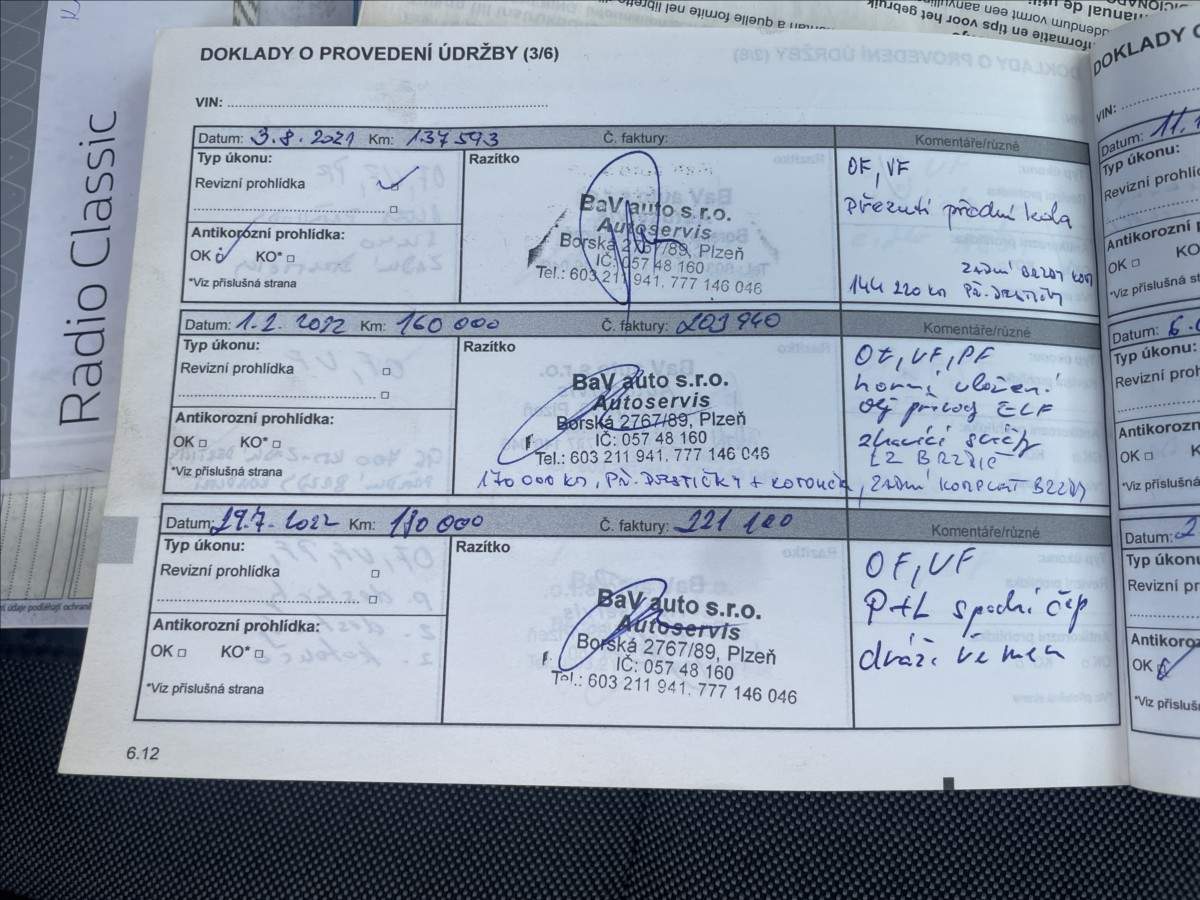 Radio Classic
manual de uti
DOKLADY O PROVEDENÍ ÚDRŽBY (3/6)
VIN:
Datum: 3.8.2021 Km: 137593 Č. faktury: Komentáře/různé
Typ úkonu:
Revizní prohlídka
Antikorozní prohlídka:
OK KO*
*Viz příslušná strana
Razítko
BaV auto s.r.o.
Autoservis
Borská 2767/89, Plzeň
IČ: 057 48 160
Tel.: 603 211 941. 777 146 046
OF, VF
Přezutí přední kola
ZADNÍ BRZDY
144 220 km PŘ. DESTIČKY
Datum: 1.2.2022 Km: 160 000 Č. faktury: Komentáře/různé
Typ úkonu:
Revizní prohlídka
Antikorozní prohlídka:
OK KO*
*Viz příslušná strana
Razítko
BaV auto s.r.o.
Autoservis
Borská 2767/89, Plzeň
IČ: 057 48 160
Tel.: 603 211 941. 777 146 046
170 000 km, PŘ. DESTIČKY + KOTOUČE, ZADNÍ KOMPLET BRZDY
OF, VF, PF
horní uložení
olej ELF
Datum: 29.7.2022 Km: Č. faktury: Komentáře/různé
Typ úkonu:
Revizní prohlídka
Antikorozní prohlídka:
OK KO*
*Viz příslušná strana
Razítko
BaV auto s.r.o.
Autoservis
Borská 2767/89, Plzeň
IČ: 057 48 160
Tel.: 603 211 941. 777 146 046
OF, VF
P+L spodní čep
6.12
DOKLADY
VIN:
Datum: 11.
Typ úkonu:
Revizní
Antikorozní
OK KO
*Viz příslušná
Datum: 6.
Typ úkonu:
Revizní
OK
*Viz příslušná
Datum:
Typ úkonu
Revizní
OK
*Viz příslušná